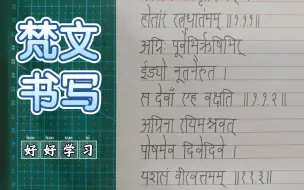 梵文
书写
hǎo hǎo xué xí
好好学习
होतारं रत्नधातमम् ॥१.१.१॥
अग्निः पूर्वेभिर्ऋषिभिर्
ईड्यो नूतनैरुत ।
स देवाँ एह वक्षति ॥१.१.२॥
अग्निना रयिमश्नवत्
पोषमेव दिवेदिवे ।
यशसं वीरवत्तमम् ॥१.१.३॥